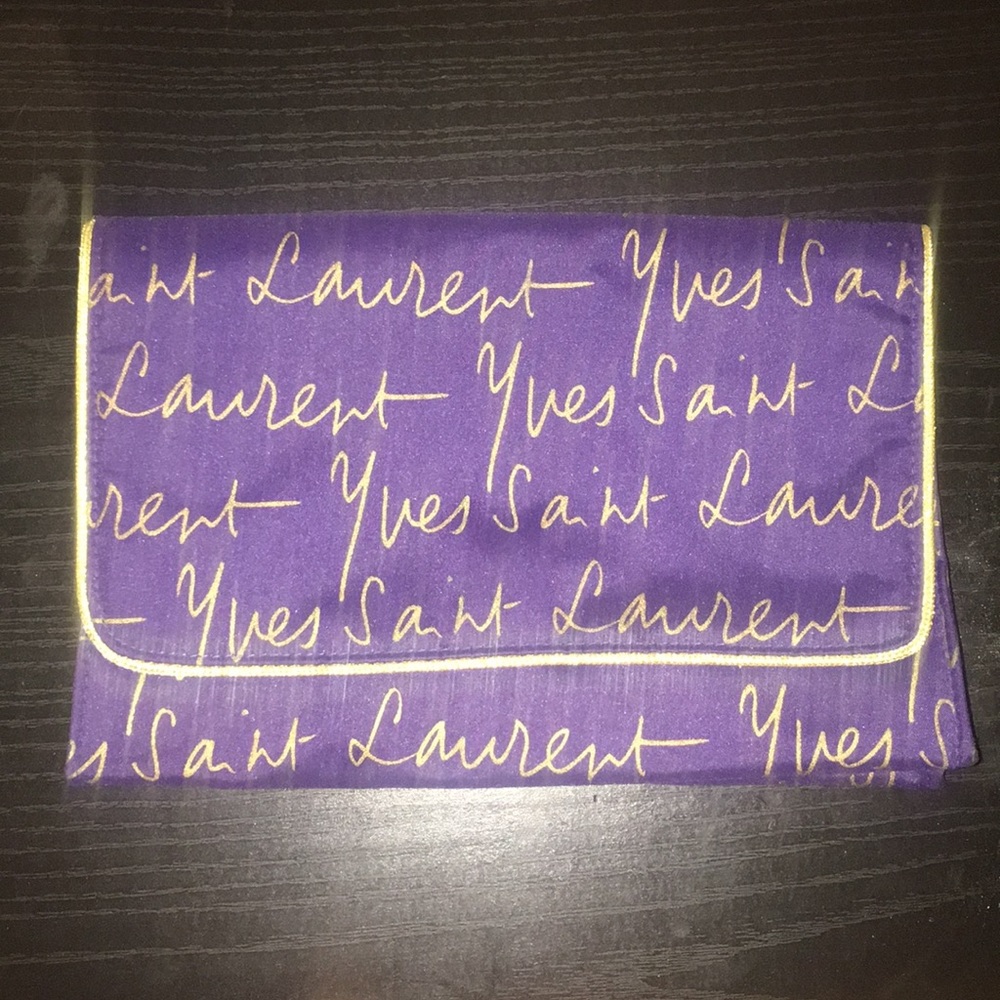 aint Laurent Yves Sain
Laurent Yves Saint La
urent Yves Saint Laure
Yves Saint Laurent
es Saint Laurent Yves S